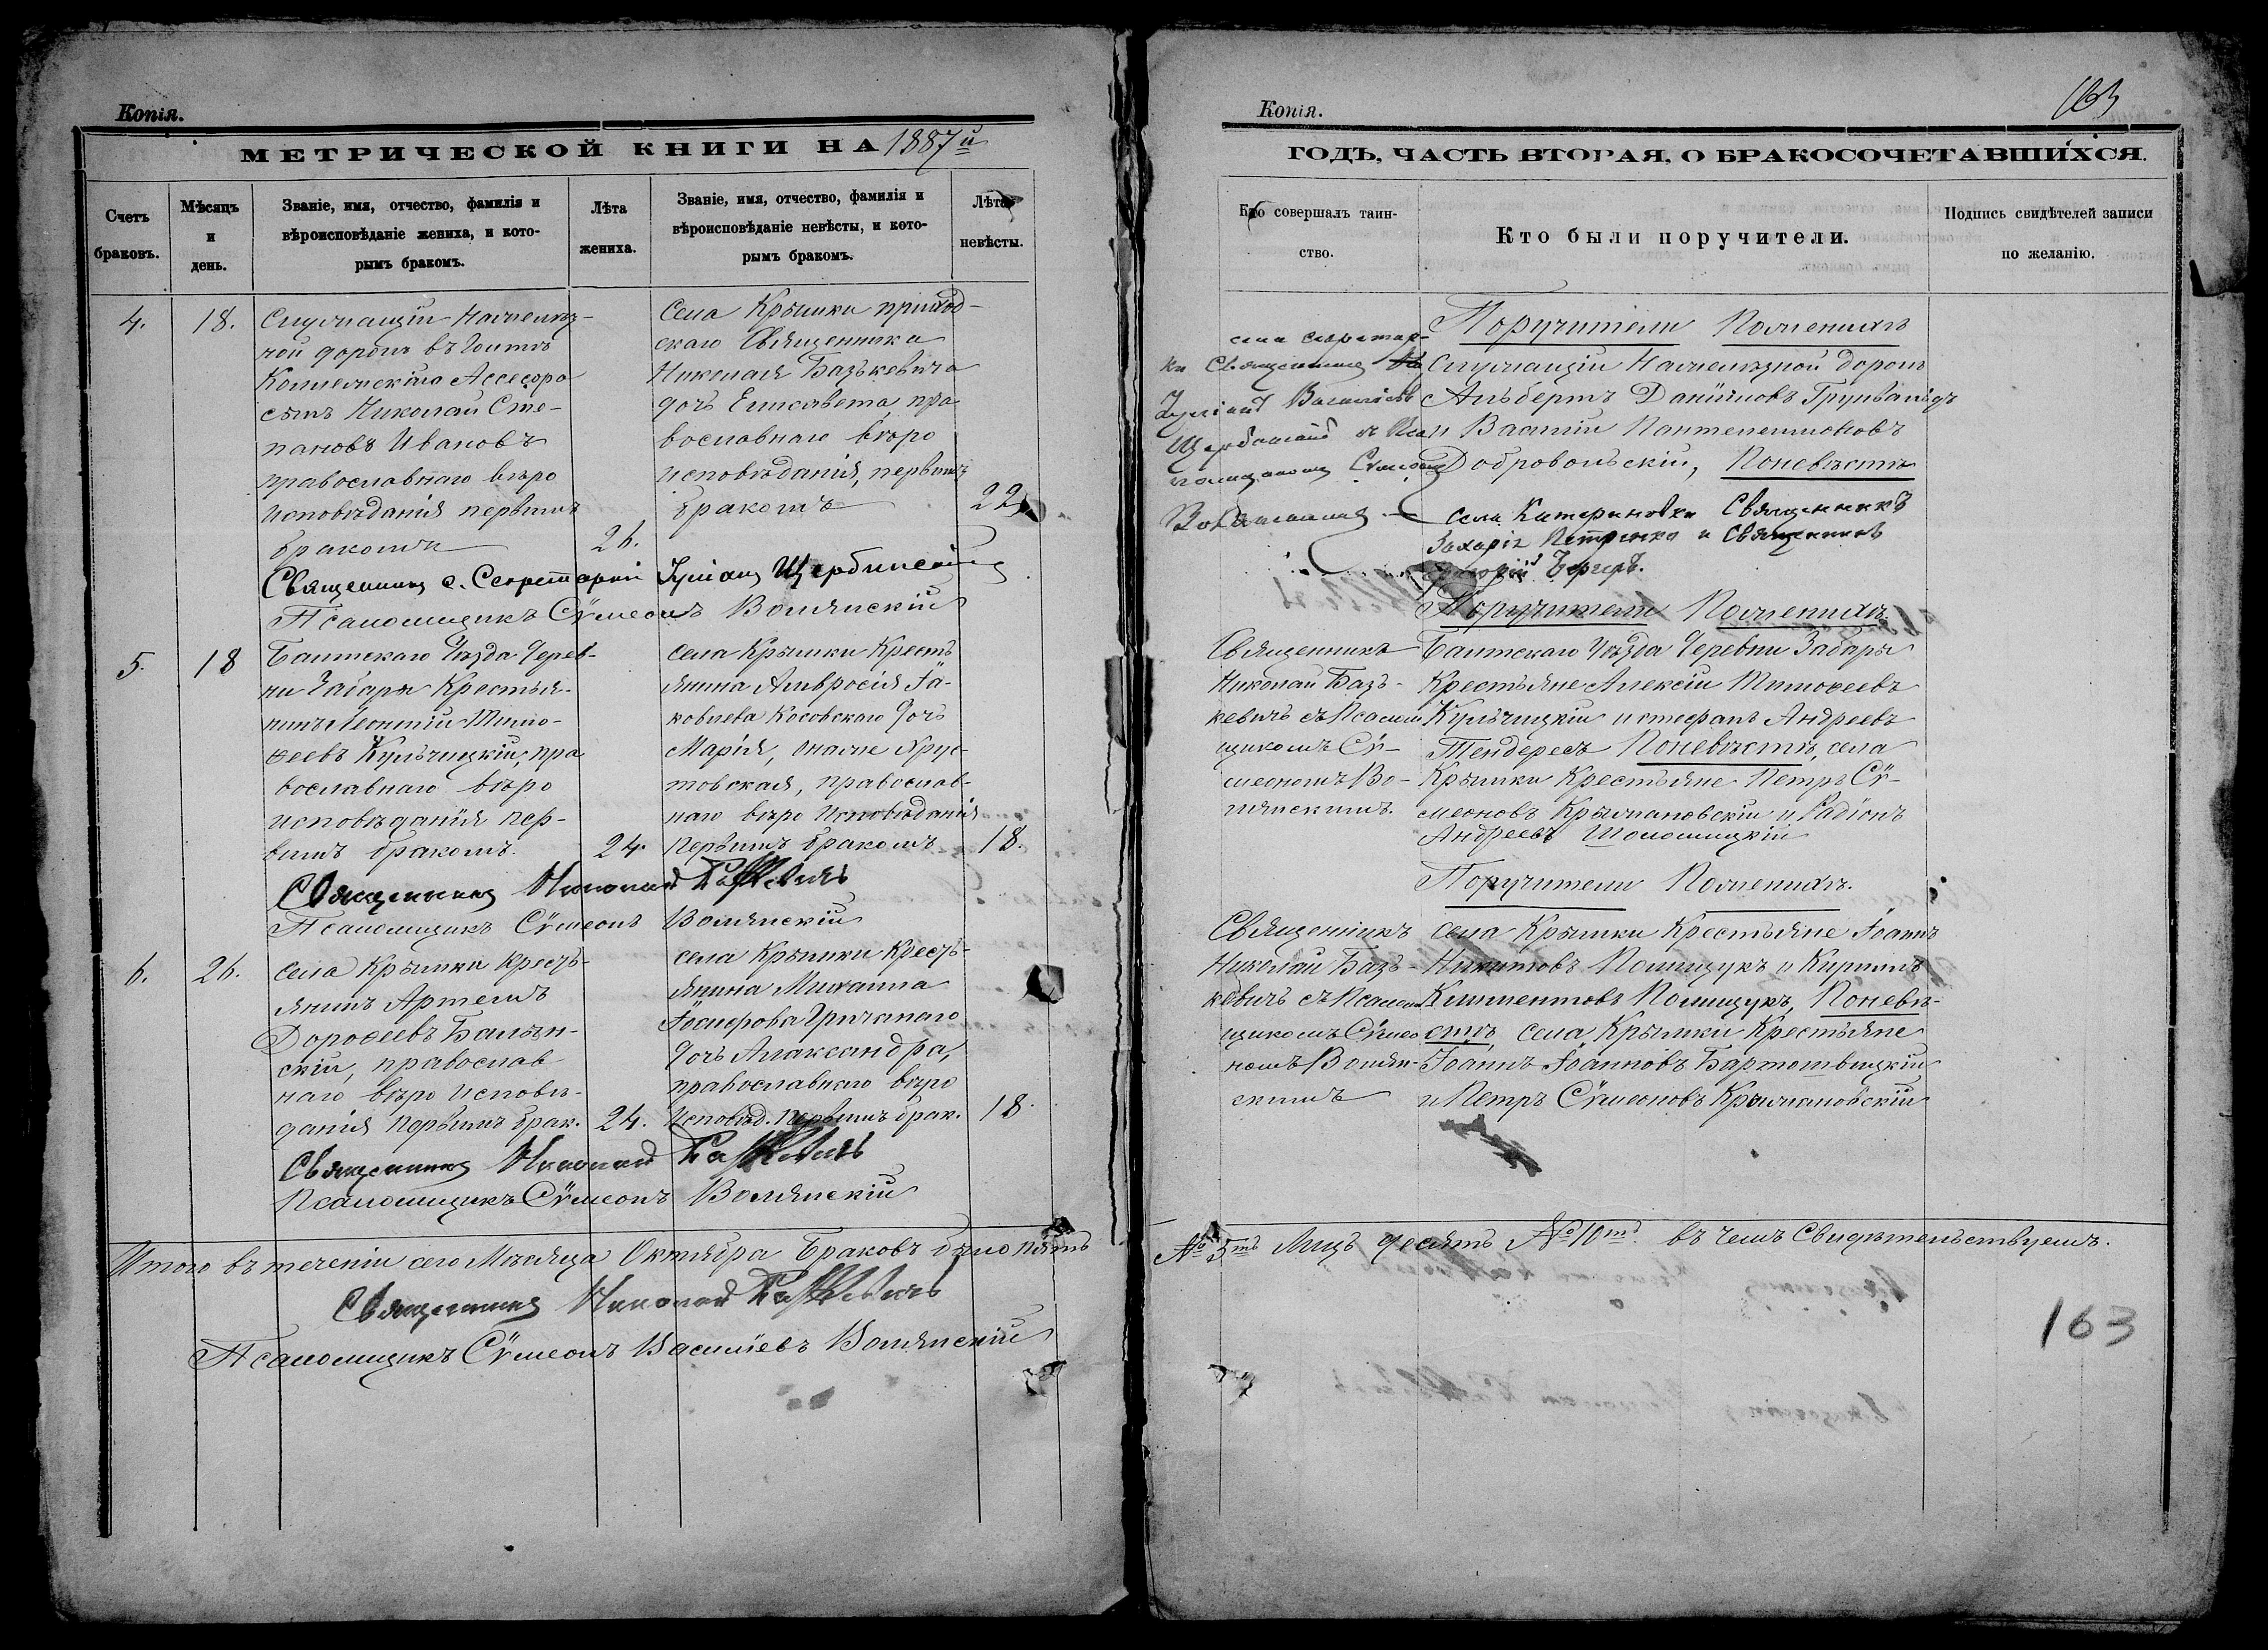 Копія.
МЕТРИЧЕСКОЙ КНИГИ НА 1887й
Счетъ браковъ.
Мѣсяцъ и день.
Званіе, имя, отчество, фамилія и
вѣроисповѣданіе жениха, и кото-
рымъ бракомъ.
Лѣта жениха.
Званіе, имя, отчество, фамилія и
вѣроисповѣданіе невѣсты, и кото-
рымъ бракомъ.
Лѣта невѣсты.
4.
18.
Служащій на желѣз-
ной дорогѣ въ
Коллежскій Ассесоро
Николай Сте-
пановъ Ивановъ
православнаго вѣро
исповѣданія первымъ
бракомъ
26.
Села Крымки приход-
скаго Священника
Николая Базькевича
дочь Елисавета, пра
вославнаго вѣро
исповѣданія, первымъ
бракомъ
22
Священникъ с. Секретарки Іуліанъ Щербинскій
Псаломщикъ Сѵмеонъ Волянскій
5.
18
Балтскаго Уѣзда Дерев-
ни Забары Крестья-
нинъ Леонтій Тимо-
ѳеевъ Кульчицкій, пра
вославнаго вѣро
исповѣданія пер-
вымъ бракомъ.
24.
села Крымки Кресть
янина Амвросія Іа-
ковлева Косовскаго дочь
Марія, она же Хрус-
товская, православ-
наго вѣро исповѣданія
первымъ бракомъ
18.
Священникъ Николай Базькевичъ
Псаломщикъ Сѵмеонъ Волянскій
6.
26.
села Крымки кресть-
янинъ Артемъ
Дороѳеевъ Балын-
скій, православ
наго вѣро исповѣ-
данія первымъ брак.
24.
села Крымки Кресть-
янина Михаила
Іосифова Гричанаго
дочь Александра,
православнаго вѣро
исповѣд. первымъ брак.
18.
Священникъ Николай Базькевичъ
Псаломщикъ Сѵмеонъ Волянскій
Итого въ теченіи сего Мѣсяца Октября Браковъ было пять
Священникъ Николай Базькевичъ
Псаломщикъ Сѵмеонъ Василіевъ Волянскій
Копія.
163
ГОДЪ, ЧАСТЬ ВТОРАЯ, О БРАКОСОЧЕТАВШИХСЯ.
Кто совершалъ таин-
ство.
Кто были поручители.
Подпись свидѣтелей записи
по желанію.
села Секретар-
ки Священникъ
Іуліанъ Василіевъ
Щербинскій съ Пса
ломщикомъ Сѵмеон
Волянскимъ
Поручители По женихѣ
Служащій на желѣзной дорогѣ
Альбертъ Даніиловъ Грунвальдъ
и Василій Пантелеимоновъ
Добровольскій, По невѣстѣ
села Катериновки Священникъ
Захарія Петренко и Священникъ
Григорій Бергеръ.
Поручители По женихѣ.
Священникъ
Николай Базь-
кевичъ съ Псалом
щикомъ Сѵ-
меономъ Во-
лянскимъ.
Балтскаго Уѣзда Деревни Забары
Крестьяне Алексій Тимоѳеевъ
Кульчицкій и Стефанъ Андреевъ
Тендересъ По невѣстѣ, села
Крымки Крестьяне Петръ Сѵ-
меоновъ Крыжановскій и Радіонъ
Андреевъ Шоломицкій
Поручители По женихѣ.
Священникъ
Николай Базь-
кевичъ съ Псалом
щикомъ Сѵмео
номъ Волян-
скимъ
села Крымки Крестьяне Іоаннъ
Никитовъ Полищукъ и Кириллъ
Климентовъ Полищукъ, По невѣ-
стѣ, села Крымки Крестьяне
Іоаннъ Іоанновъ Бартошвицкій
и Петръ Сѵмеоновъ Крыжановскій
№ 5ть Лицъ десять № 10ть въ чемъ Свидѣтельствуемъ.
163